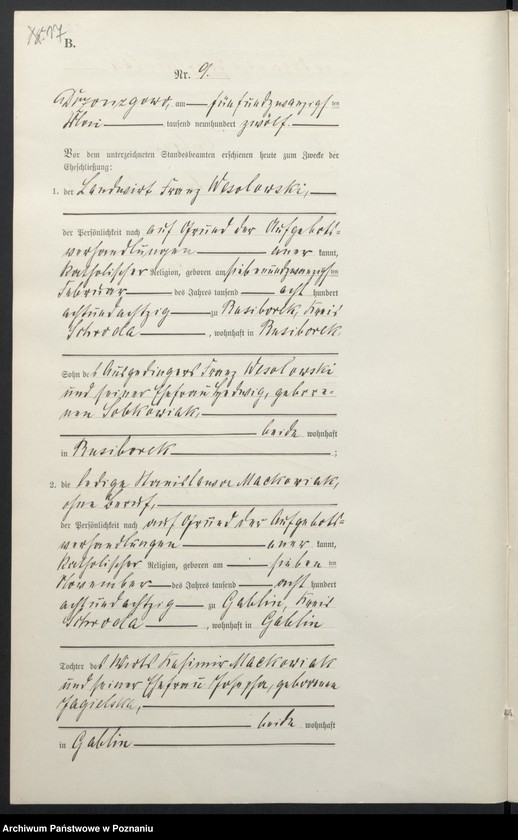 B.
Nr. 9.
am fünfundzwanzigsten
Mai tausend neunhundert zwölf.
Vor dem unterzeichneten Standesbeamten erschienen heute zum Zwecke der
Eheschließung:
1. der Landwirt Franz Wesolowski,
der Persönlichkeit nach auf Grund der Aufgebots-
verhandlungen aner kannt,
katholischer Religion, geboren am siebenundzwanzigsten
Februar des Jahres tausend acht hundert
achtundachtzig zu Rusiborek, Kreis
Schroda, wohnhaft in Rusiborek
Sohn des Ausgedingers Franz Wesolowski
und seiner Ehefrau Hedwig, gebore-
nen Sobkowiak,
beide wohnhaft
in Rusiborek ;
2. die ledige Stanislawa Mackowiak,
ohne Beruf,
der Persönlichkeit nach auf Grund der Aufgebots-
verhandlungen aner kannt,
katholischer Religion, geboren am sieben ten
November des Jahres tausend acht hundert
achtundachtzig zu Gablin, Kreis
Schroda, wohnhaft in Gablin
Tochter des Wirts Kasimir Mackowiak
und seiner Ehefrau Josepha, geborenen
Jagielska,
beide wohnhaft
in Gablin
Archiwum Państwowe w Poznaniu